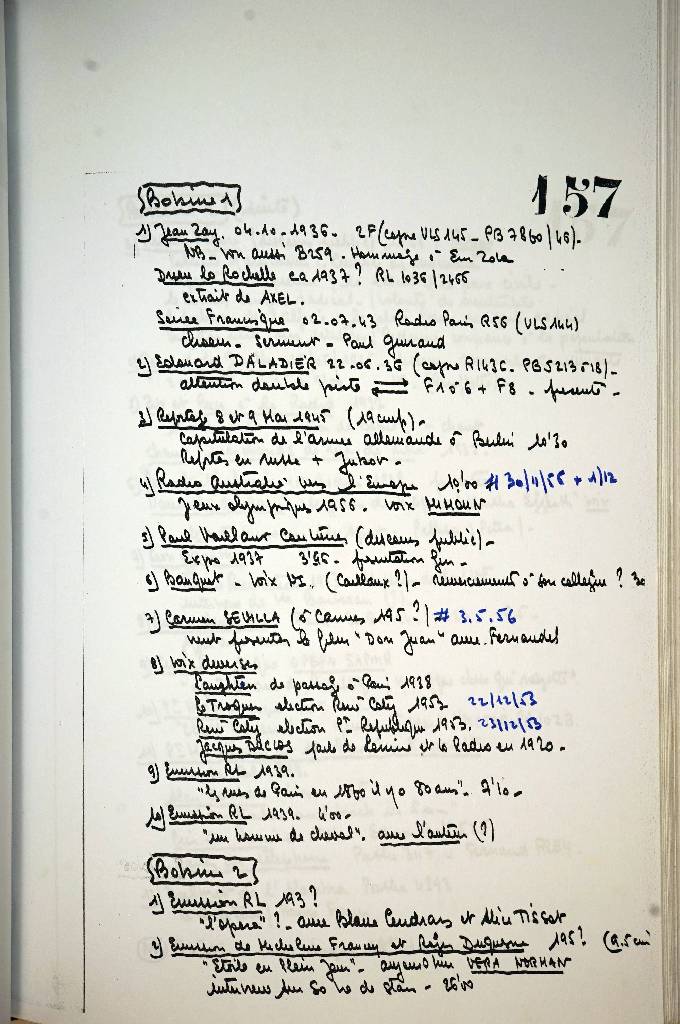 157
Bobine 1
1) Jean Zay. 04.10.1936. 2F (copie VLS 145 - PB 7860/46)-
NB - voir aussi B259. Hommage à Em Zola
Drieu la Rochelle ca 1937? RL 1036/2466
extrait de AXEL.
Soirée Francisque 02.07.43 Radio Paris R56 (VLS144)
choeur - Serment - Paul
2) Edouard DALADIER 22.06.36 (copie R143C - PB5213 518)-
attention double piste ⇄ F106 + F8 - presente -
3) Reptge 8 et 9 Mai 1945 (19cmp)-
Capitulation de l'armée allemande à Berlin 10'30
Reptes en russe + Jukov -
4) Radio Australie vers l'Europe 10'00 # 30/11/56 + 1/12
Jeux olympiques 1956. voix MIMOUN
5) Paul Vaillant Couturier (discours public)-
Expo 1937 3'55 - presentation
6) Banquet - voix (Caillaux?) - remerciements à son collègue?
7) Carmen SEVILLA (à Cannes 195?) # 3.5.56
vient presenter le film "Don Juan" avec Fernandel
8) voix diverses
Laughton de passage à Paris 1938
Le Troquer election René Coty 1953 22/12/53
René Coty election Pt Republique 1953. 23/12/53
Jacques DUCLOS parle de Lenine et la Radio en 1920.
9) Emission RL 1939.
"les rues de Paris en 1860 il y a 80 ans". 2'10 -
10) Emission RL 1939. 4'00 -
"un homme de cheval". avec l'auteur (?)
Bobine 2
1) Emission RL 193?
"l'opera"? - avec Blaise Cendrars et Alice TISSOT
2) Emission de Micheline Francey et Roger Duquesne 195? (9.5cm
"Etoile en Plein Jour" - aujourd'hui VERA NORMAN
interview sur sa vie de star - 26'00